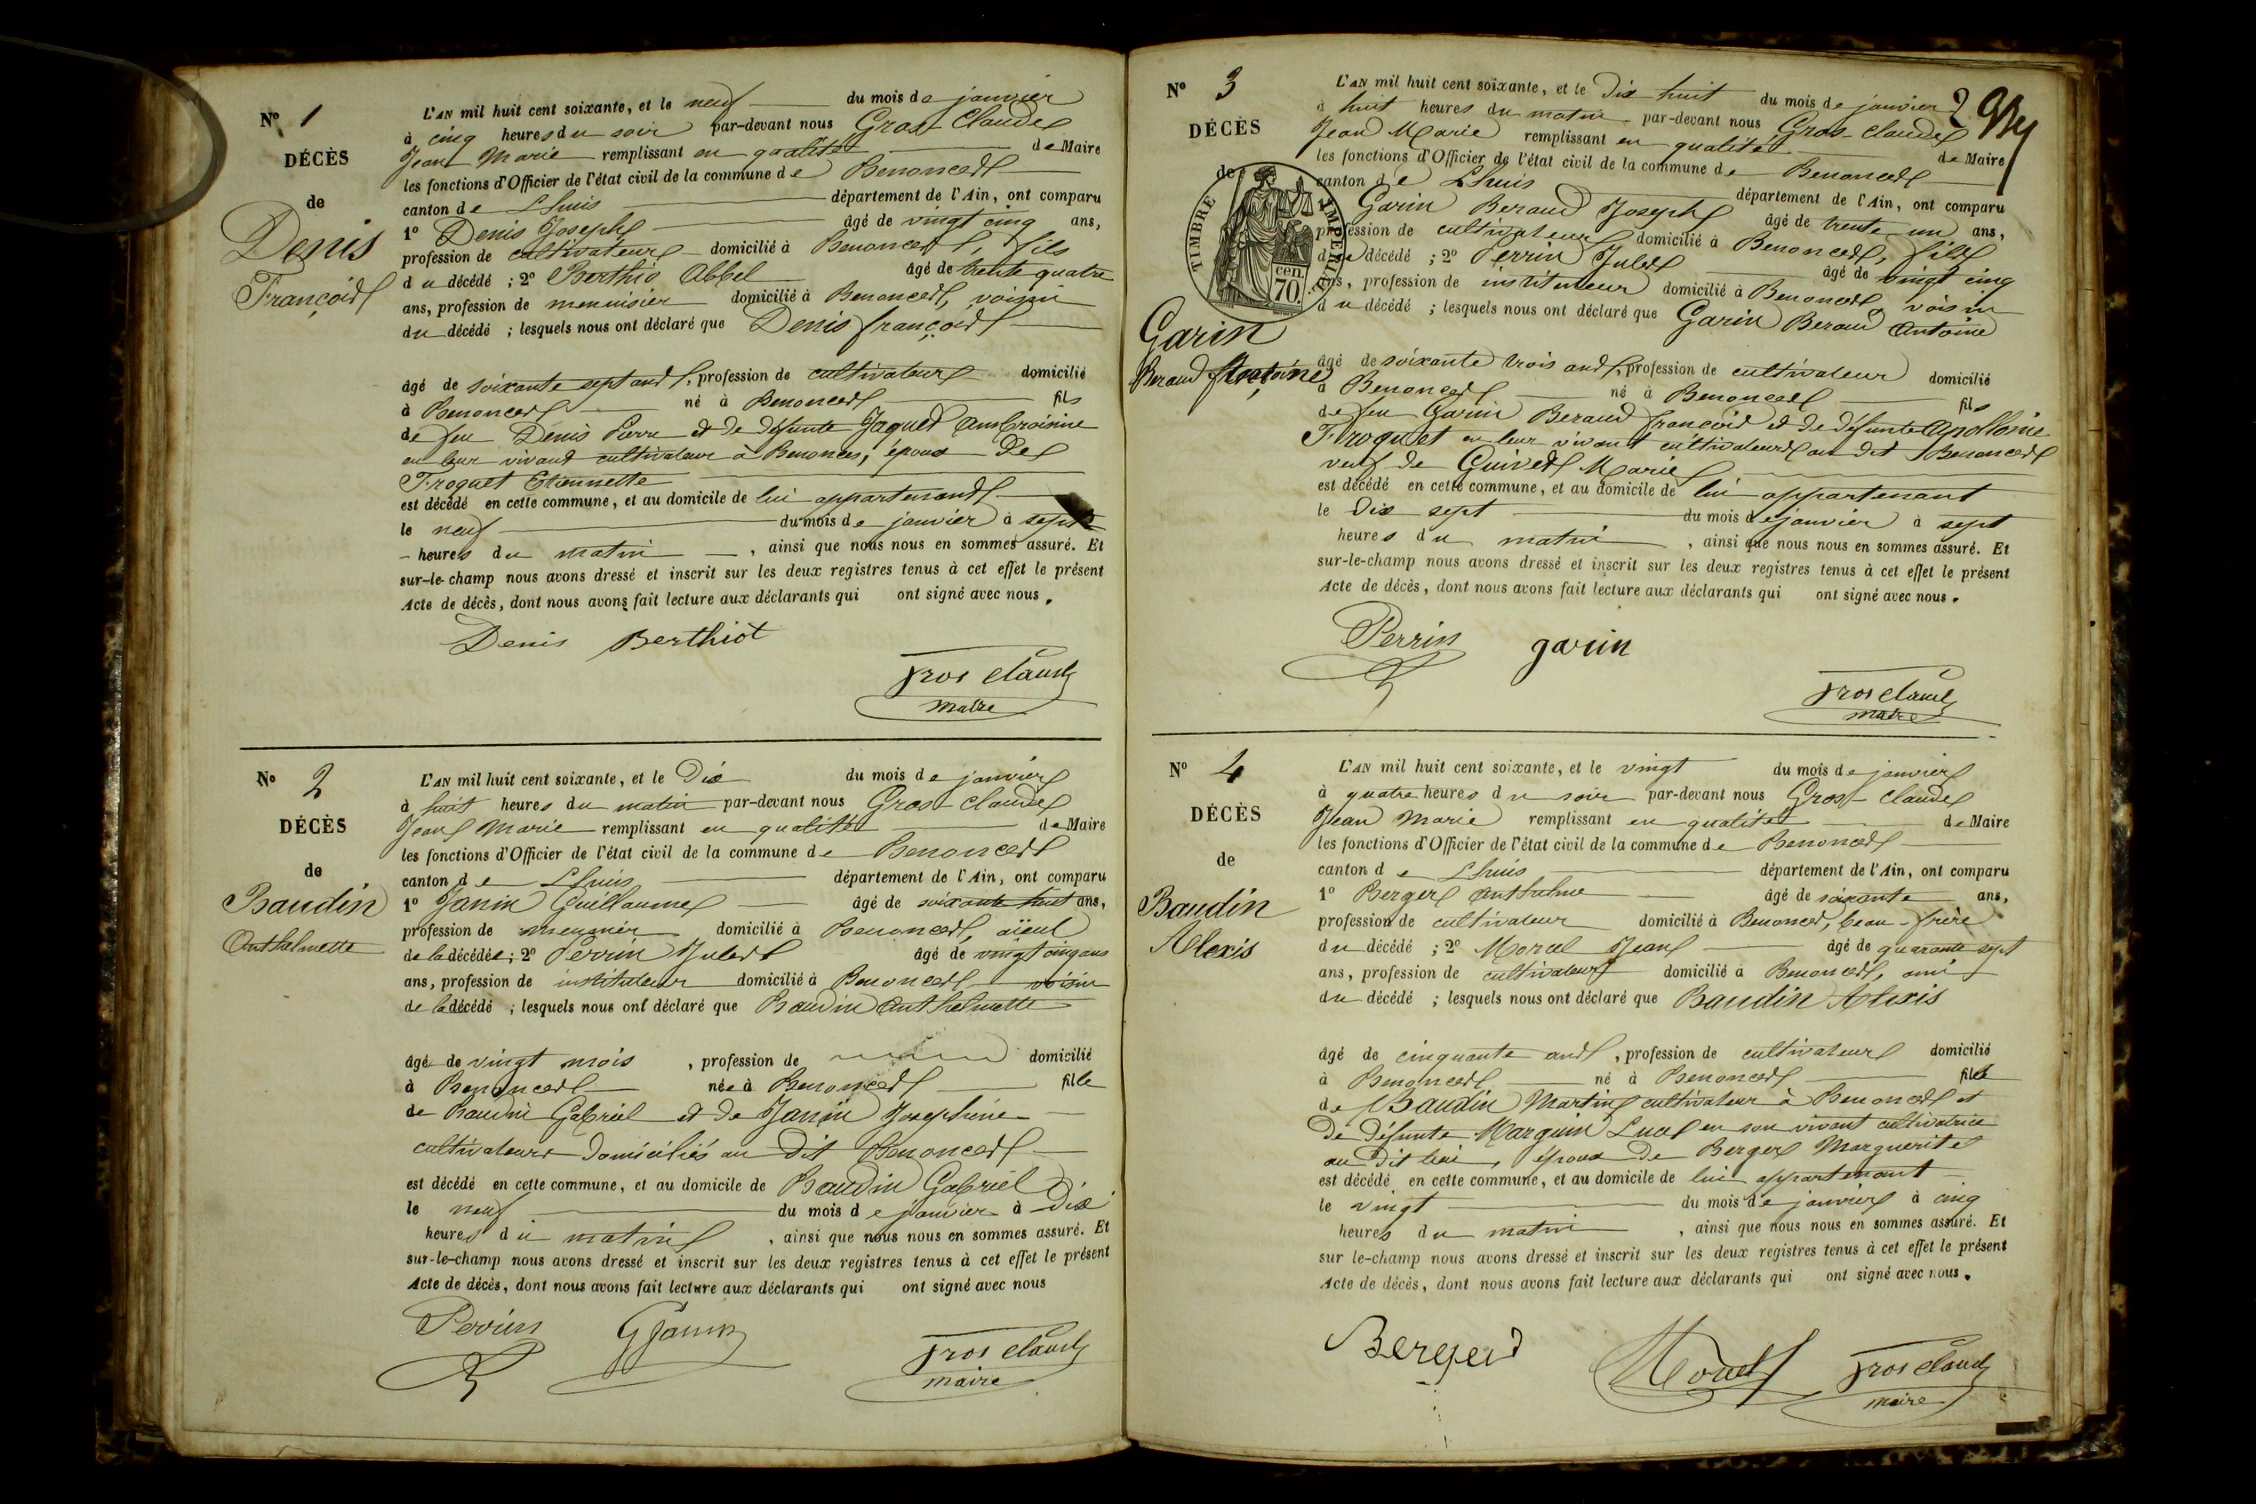 No 1
DÉCÈS
de
Denis
François
L'AN mil huit cent soixante, et le neuf du mois de janvier
à cinq heures du soir par-devant nous Gros-Claude
Jean Marie remplissant en qualité de Maire
les fonctions d'Officier de l'état civil de la commune de Benonces
canton de Lhuis département de l'Ain, ont comparu
1o Denis Joseph âgé de vingt cinq ans,
profession de cultivateur domicilié à Benonces, fils
du décédé ; 2o Berthio Abbel âgé de trente quatre
ans, profession de menuisier domicilié à Benonces, voisin
du décédé ; lesquels nous ont déclaré que Denis françois
âgé de soixante sept ans, profession de cultivateur domicilié
à Benonces né à Benonces fils
de feu Denis Pierre et de défunte Jaquet Ambroisine
en leur vivant cultivateur à Benonces, époux De
Froquet Etiennette
est décédé en cette commune, et au domicile de lui appartenant
le neuf du mois de janvier à sept
heures du matin, ainsi que nous nous en sommes assuré. Et
sur-le-champ nous avons dressé et inscrit sur les deux registres tenus à cet effet le présent
Acte de décès, dont nous avons fait lecture aux déclarants qui ont signé avec nous.
Denis Berthiot
Gros Claude
maire
No 2
DÉCÈS
de
Baudin
Anthelmette
L'AN mil huit cent soixante, et le Dix du mois de janvier
à huit heures du matin par-devant nous Gros-Claude
Jean Marie remplissant en qualité de Maire
les fonctions d'Officier de l'état civil de la commune de Benonces
canton de Lhuis département de l'Ain, ont comparu
1o Janin Guillaume âgé de soixante huit ans,
profession de meunier domicilié à Benonces, aïeul
de la décédée ; 2o Perrin Jules âgé de vingt cinq ans
ans, profession de instituteur domicilié à Benonces voisin
de la décédé ; lesquels nous ont déclaré que Baudin Anthelmette
âgé de vingt mois, profession de domicilié
à Benonces née à Benonces fille
de Baudin Gabriel et de Janin Josephine
cultivateurs domiciliés au dit Benonces
est décédé en cette commune, et au domicile de Baudin Gabriel
le neuf du mois de janvier à Dix
heures du matin, ainsi que nous nous en sommes assuré. Et
sur-le-champ nous avons dressé et inscrit sur les deux registres tenus à cet effet le présent
Acte de décès, dont nous avons fait lecture aux déclarants qui ont signé avec nous
Perrin GJanin
Gros Claude
maire
No 3
DÉCÈS
de
TIMBRE IMPERIAL
cen.
70.
Garin
Beraud Antoine
2
L'AN mil huit cent soixante, et le Dix huit du mois de janvier
à huit heures du matin par-devant nous Gros-Claude
Jean Marie remplissant en qualité de Maire
les fonctions d'Officier de l'état civil de la commune de Benonces
canton de Lhuis département de l'Ain, ont comparu
Garin Beraud Joseph âgé de trente un ans,
profession de cultivateur domicilié à Benonces, fils
du décédé ; 2o Perrin Jules âgé de vingt cinq
ans, profession de instituteur domicilié à Benonces voisin
du décédé ; lesquels nous ont déclaré que Garin Beraud Antoine
âgé de soixante trois ans, profession de cultivateur domicilié
à Benonces né à Benonces fils
de feu Garin Beraud françois et de défunte Apollonie
Froquet en leur vivant cultivateurs au dit Benonces
veuf de Guivet Marie
est décédé en cette commune, et au domicile de lui appartenant
le Dix sept du mois de janvier à sept
heures du matin, ainsi que nous nous en sommes assuré. Et
sur-le-champ nous avons dressé et inscrit sur les deux registres tenus à cet effet le présent
Acte de décès, dont nous avons fait lecture aux déclarants qui ont signé avec nous.
Perrin garin
Gros Claude
maire
No 4
DÉCÈS
de
Baudin
Alexis
L'AN mil huit cent soixante, et le vingt du mois de janvier
à quatre heures du soir par-devant nous Gros-Claude
Jean Marie remplissant en qualité de Maire
les fonctions d'Officier de l'état civil de la commune de Benonces
canton de Lhuis département de l'Ain, ont comparu
1o Berger Anthelme âgé de soixante ans,
profession de cultivateur domicilié à Benonces, beau-frère
du décédé ; 2o Morel Jean âgé de quarante sept
ans, profession de cultivateur domicilié à Benonces, ami
du décédé ; lesquels nous ont déclaré que Baudin Alexis
âgé de cinquante ans, profession de cultivateur domicilié
à Benonces né à Benonces fils
de Baudin Martin cultivateur à Benonces et
de défunte Marguin Luce en son vivant cultivatrice
au dit lieu, époux de Berger Marguerite
est décédé en cette commune, et au domicile de lui appartenant
le vingt du mois de janvier à cinq
heures du matin, ainsi que nous nous en sommes assuré. Et
sur le-champ nous avons dressé et inscrit sur les deux registres tenus à cet effet le présent
Acte de décès, dont nous avons fait lecture aux déclarants qui ont signé avec nous.
Berger Morel Gros Claude
maire